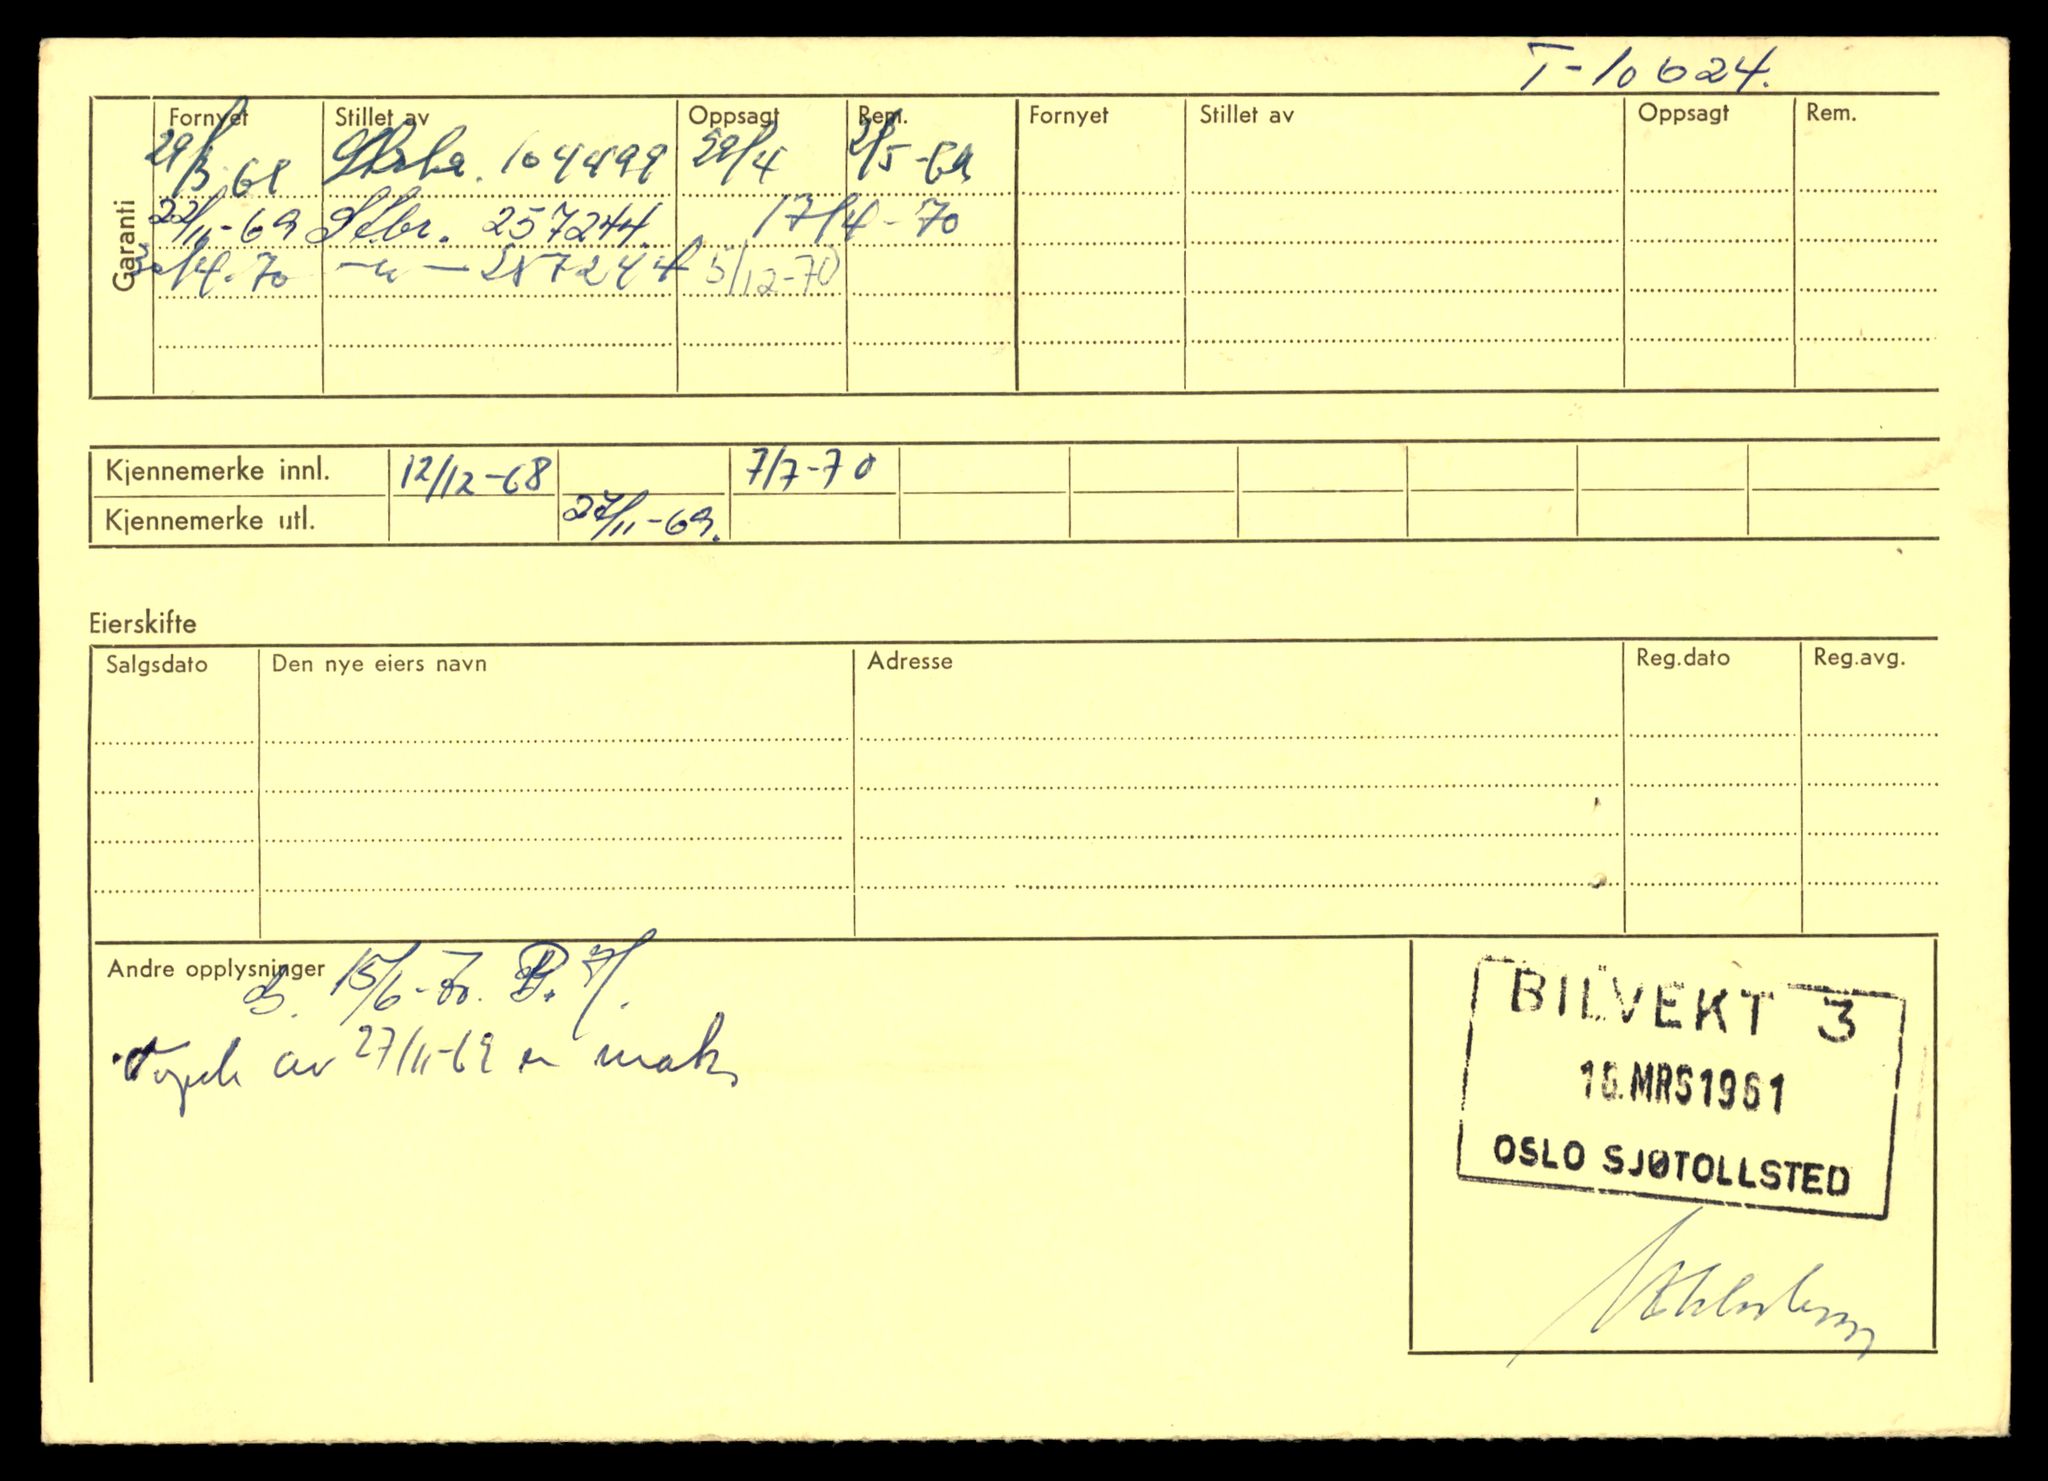 T-10624.
Garanti
Fornyet Stillet av Oppsagt Rem. Fornyet Stillet av Oppsagt Rem.
29/3-68 104499 29/4 2/5-69
22/11-69 Stbr. 257244. 17/4-70
30/4-70 — " — 257244 5/12-70
Kjennemerke innl. 12/12-68 7/7-70
Kjennemerke utl. 27/11-69.
Eierskifte
Salgsdato Den nye eiers navn Adresse Reg.dato Reg.avg.
Andre opplysninger
15/6-70.
av 27/11-69 er mak.
BILVEKT 3
16.MRS1961
OSLO SJØTOLLSTED